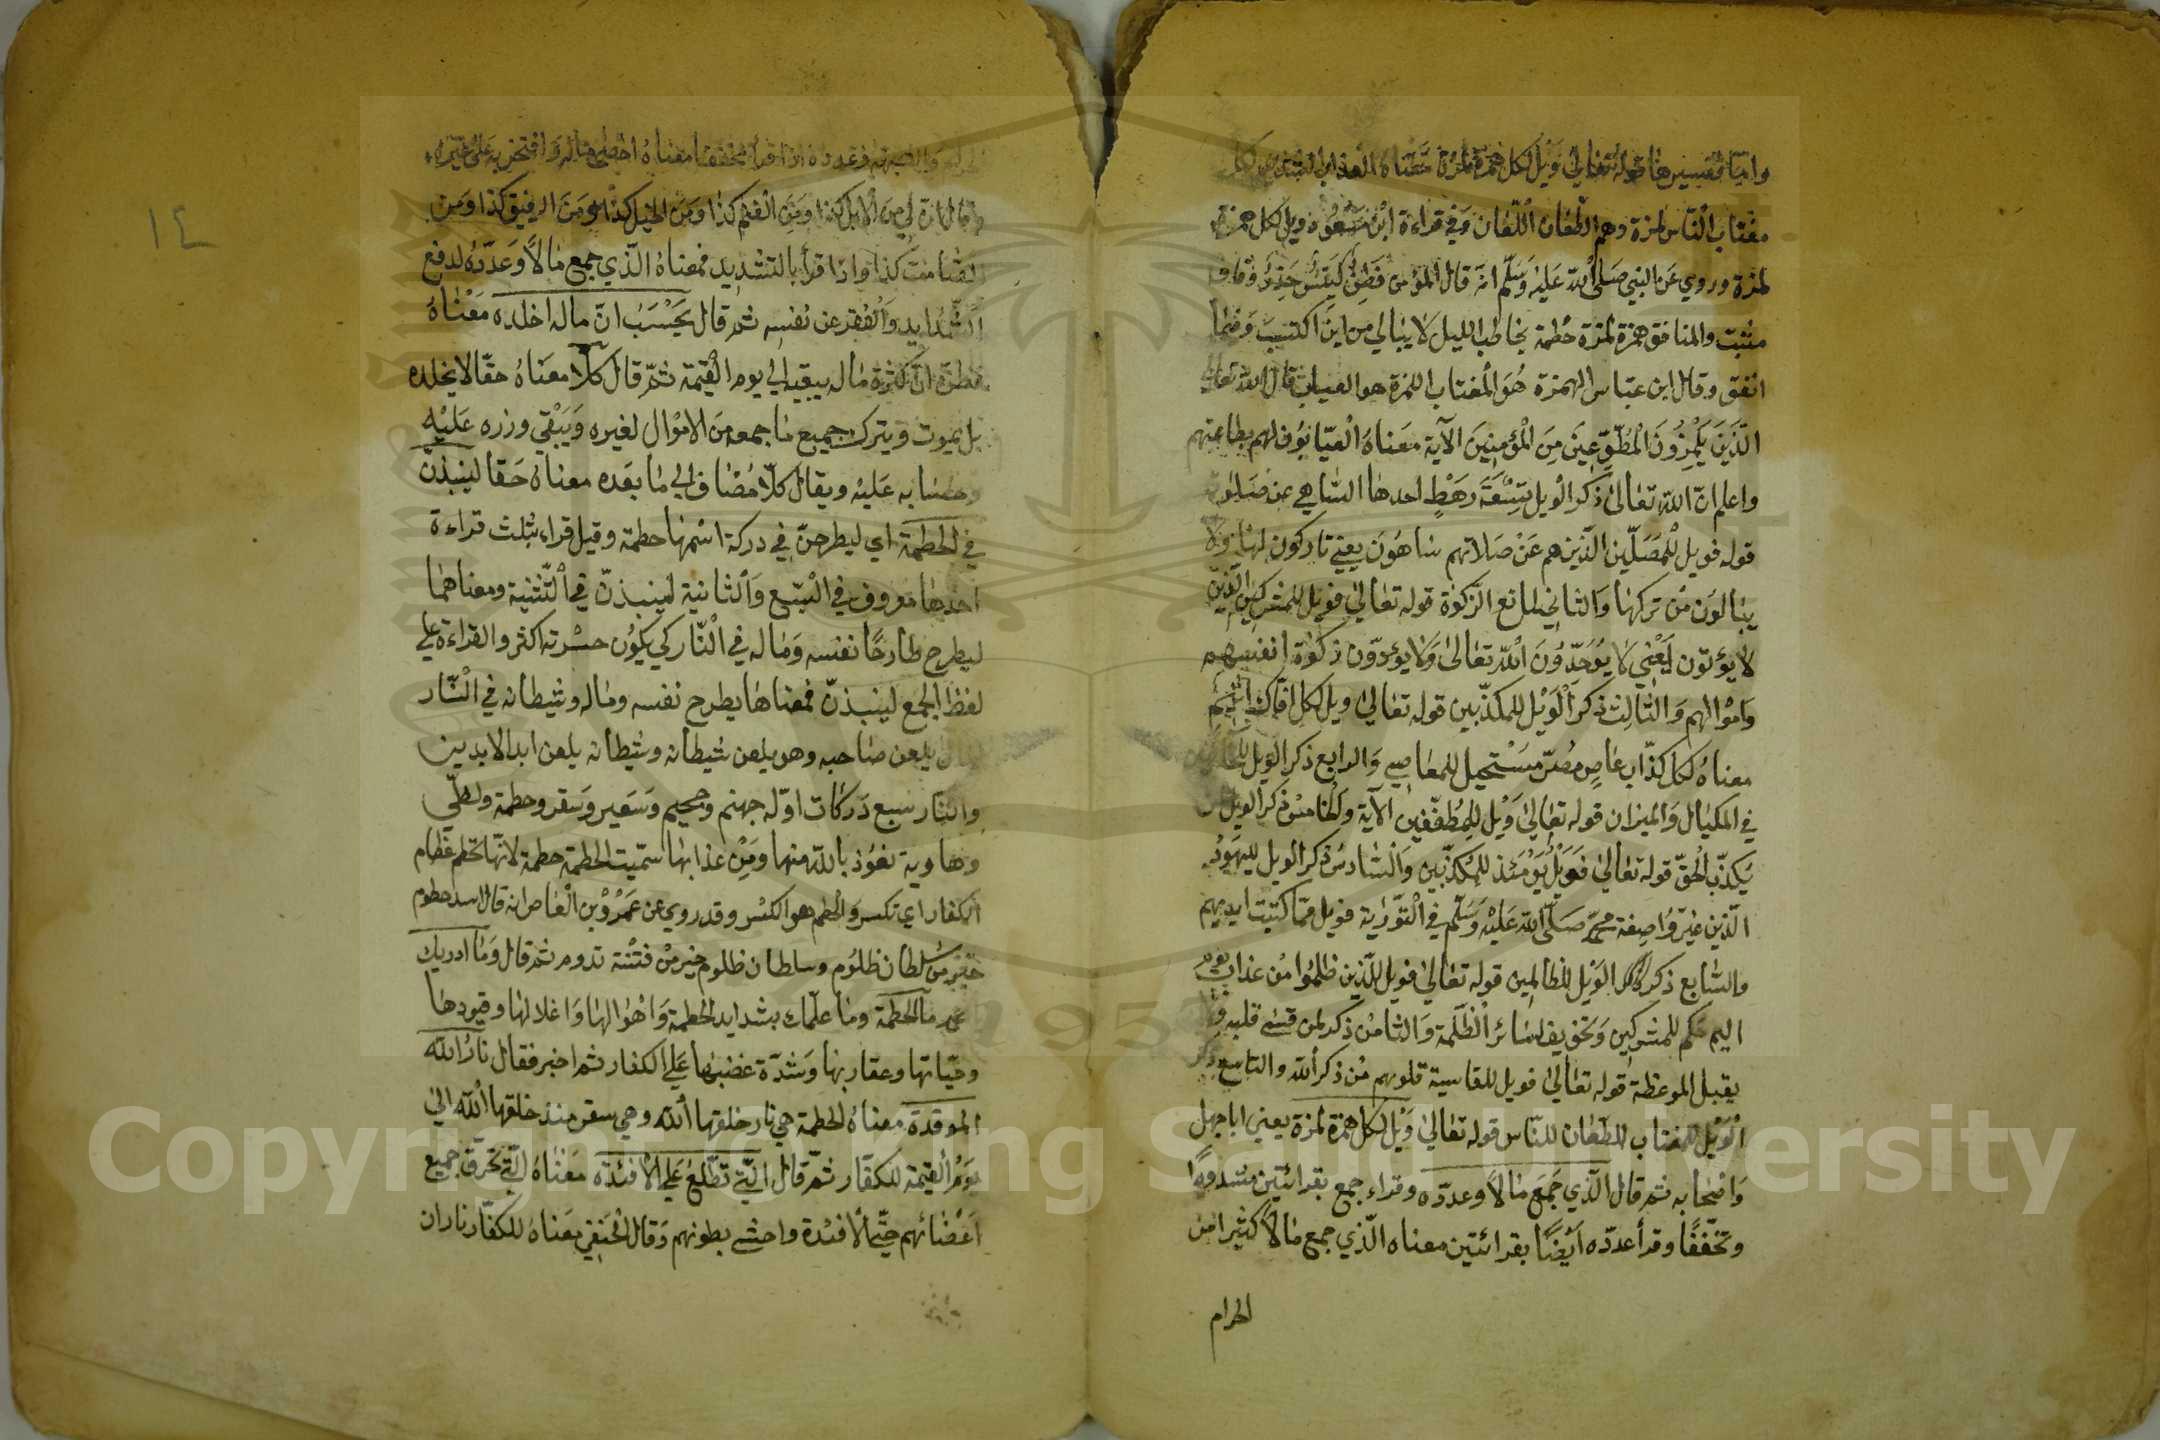 واما تفسيرها قوله تعالى ويل لكل همزة لمزة معناه العذاب الشديد لكل
مغتاب الناس لمزة وهم الطعان اللعان وفي قراءة ابن مسعود ويل لكل همزة
لمزة وروي عن النبي صلى الله عليه وسلم انه قال المؤمن فطن كيس حذر وقاف
مثبت والمنافق همزة لمزة حطمة بخاطب الليل لا يبالي من اين اكتسب وفيما
انفق وقال ابن عباس الهمزة هو المغتاب اللمزة هو العياب قال الله تعالى
الذين يلمزون المطوعين من المؤمنين الآية معناه العيابون لهم بطاعتهم
واعلم ان الله تعالى ذكر الويل بتسعة رهط احدها الساهي عن صلاته
قوله فويل للمصلين الذين هم عن صلاتهم ساهون يعني تاركون لها ولا
يبالون من تركها والثاني لمانع الزكوة قوله تعالى فويل للمشركين الذين
لا يؤتون يعني لا يوحدون الله تعالى ولا يؤدون زكوة انفسهم
واموالهم والثالث ذكر الويل للمكذبين قوله تعالى ويل لكل افاك اثيم
معناه لكل كذاب عاص مصر مستحيل للمعاصي والرابع ذكر الويل
في المكيال والميزان قوله تعالى ويل للمطففين الآية والخامس ذكر الويل
يكذب الحق قوله تعالى فويل يومئذ للمكذبين والسادس ذكر الويل لليهود
الذين غيروا صفة محمد صلى الله عليه وسلم في التورية فويل مما كتبت ايديهم
والسابع ذكر الويل للظالمين قوله تعالى فويل للذين ظلموا من عذاب يوم
اليم حكم للمشركين وتخويف لسائر الظلمة والثامن ذكر لمن قسي قلبه ولا
يقبل الموعظة قوله تعالى فويل للقاسية قلوبهم من ذكر الله والتاسع ذكر
الويل للمغتاب للطعان للناس قوله تعالى ويل لكل همزة لمزة يعني ابا جهل
واصحابه ثم قال الذي جمع مالا وعدده وقراء جمع بقرائتين مشددا
وتخففا وقرأ عدده ايضا بقرائتين معناه الذي جمع مالا كثيرا من
الحرام
١٤
وعدده اذا قرأ مخففا معناه احصى ماله وافتخر به على غيره
وقال ان لي من الابل كذا ومن الغنم كذا ومن الخيل كذا ومن الرقيق كذا ومن
الصامت كذا واذا قرأ بالتشديد فمعناه الذي جمع مالا وعدده لدفع
الشدايد والفقر عن نفسه ثم قال يحسب ان ماله اخلده معناه
ان كثرة ماله يبقيه الى يوم القيمة ثم قال كلا معناه حقا لا يخلده
بل يموت ويترك جميع ما جمعه من الاموال لغيره ويبقي وزره عليه
وحسابه عليه ويقال كلا مضاف الى ما بعده معناه حقا لينبذن
في الحطمة اي ليطرحن في دركة اسمها حطمة وقيل قراء بثلث قراءة
احدها معروف في السبع والثانية لينبذن في التثنية ومعناهما
ليطرح طارحا نفسه وماله في النار كي يكون حسرته اكثر والقراءة على
لفظ الجمع لينبذن فمعناها يطرح نفسه وماله وشيطانه في النار
يلعن صاحبه وهو يلعن شيطانه وشيطانه يلعن ابد الابدين
والنار سبع دركات اوله جهنم وجحيم وسعير وسقر وحطمة ولظى
وهاوية نعوذ بالله منها ومن عذابها سميت الحطمة حطمة لانها تحطم عظام
الكفار اي تكسر والحطم هو الكسر وقد روي عن عمرو بن العاص انه قال اسد حطوم
خير من سلطان ظلوم وسلطان ظلوم خير من فتنة تدوم ثم قال وما ادريك
ما الحطمة وما علمك بشدايد الحطمة واهوالها واغلالها وقيودها
وحياتها وعقاربها وشدة غضبها على الكفار ثم اخبر فقال نار الله
الموقدة معناه الحطمة هي نار خلقها الله وهي سقر منذ خلقها الله الى
يوم القيمة للكفار ثم قال التي تطلع على الافئدة معناه التي تحرق جميع
اعضائهم حتى الافئدة واحشي بطونهم وقال الحنفي معناه للكفار ناران